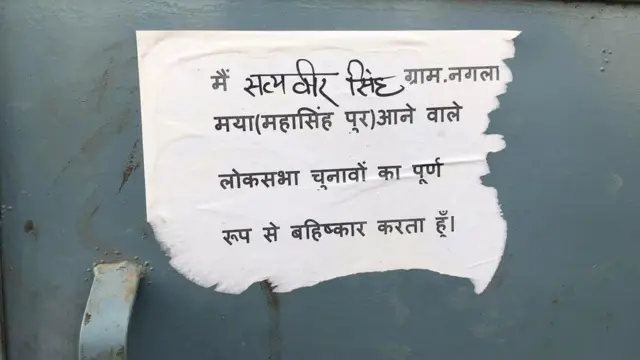 मैं सत्यवीर सिंह ग्राम.नगला
मया(महासिंह पुर)आने वाले
लोकसभा चुनावों का पूर्ण
रूप से बहिष्कार करता हूँ।